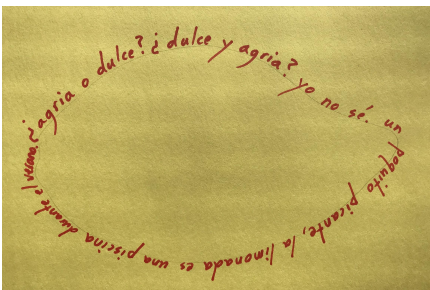 ¿agria o dulce? ¿dulce y agria? yo no sé. un poquito picante, la limonada es una piscina durante el verano.